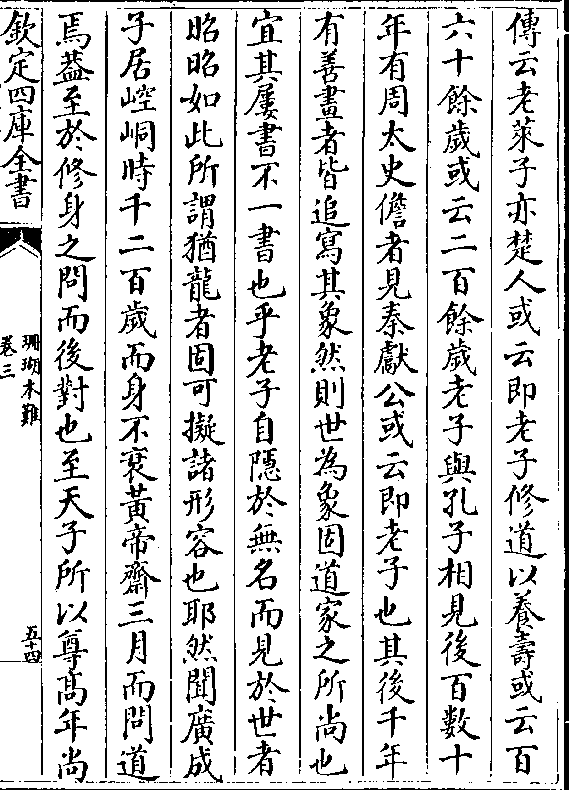 傳云老萊子亦楚人或云即老子修道以養壽或云百
六十餘歲或云二百餘歲老子與孔子相見後百數十
年有周太史儋者見秦獻公或云即老子也其後千年
有善畫者皆追寫其象然則世為象固道家之所尚也
宜其屢書不一書也乎老子自隱於無名而見於世者
昭昭如此所謂猶龍者固可擬諸形容也耶然聞廣成
子居崆峒時千二百歲而身不衰黃帝齋三月而問道
焉葢至於修身之問而後對也至天子所以尊高年尚
欽定四庫全書
珊瑚木難
卷三
五十四